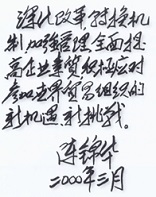 深化改革，转换机
制，加强管理，全面提
高企业素质，积极应对
参加世界贸易组织的
新机遇、新挑战。
陈锦华
二〇〇〇年三月